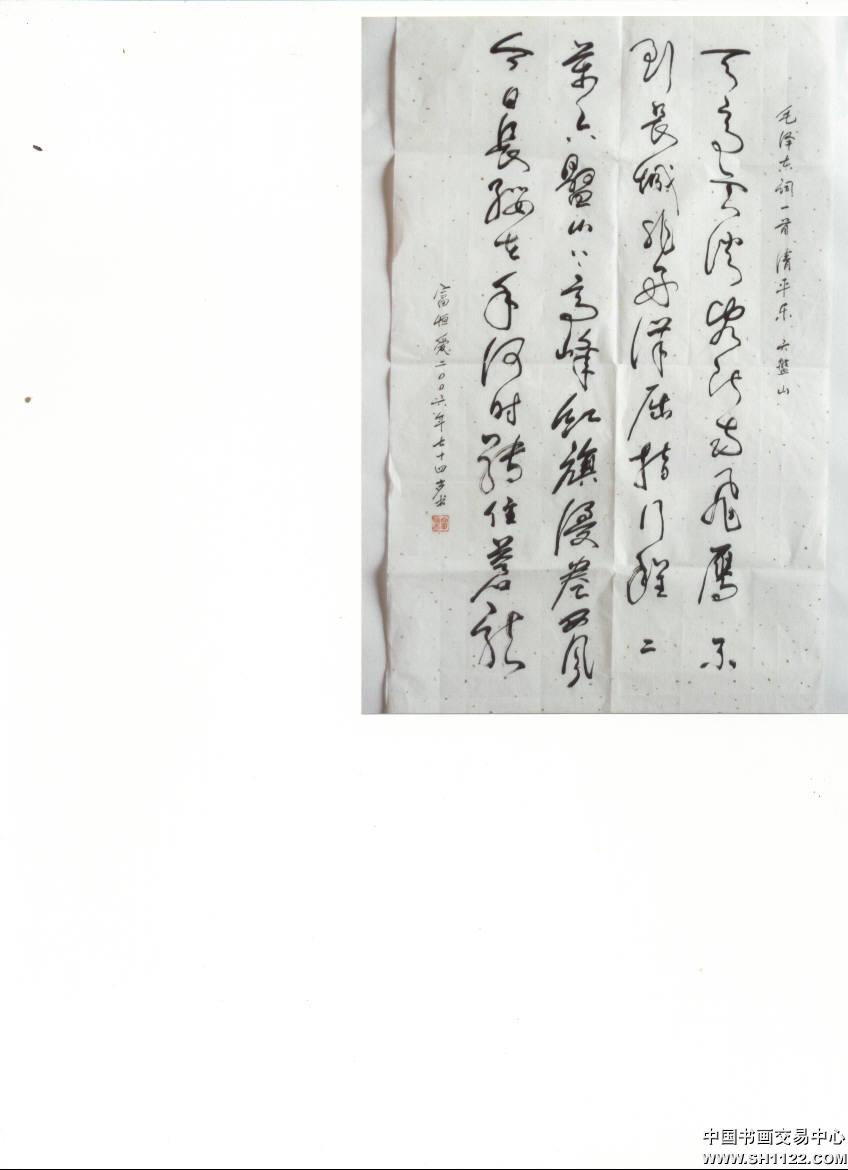 毛泽东词一首 清平乐 六盘山
天高云淡望断南飞雁不
到长城非好汉屈指行程二
萬六盤山上高峰红旗漫卷西风
今日长缨在手何时缚住苍龙
富恒爱二〇〇六年七十四岁书
中国书画交易中心
WWW.SH1122.COM